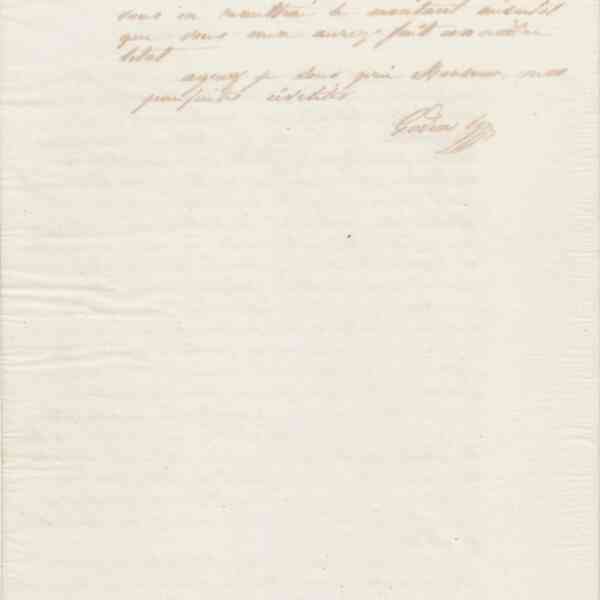 vous en remettrai le montant aussitôt
que vous m'en aurez fait connaître
létat
agreez je vous prie Monsieur, mes
parfaites civilités
Godin